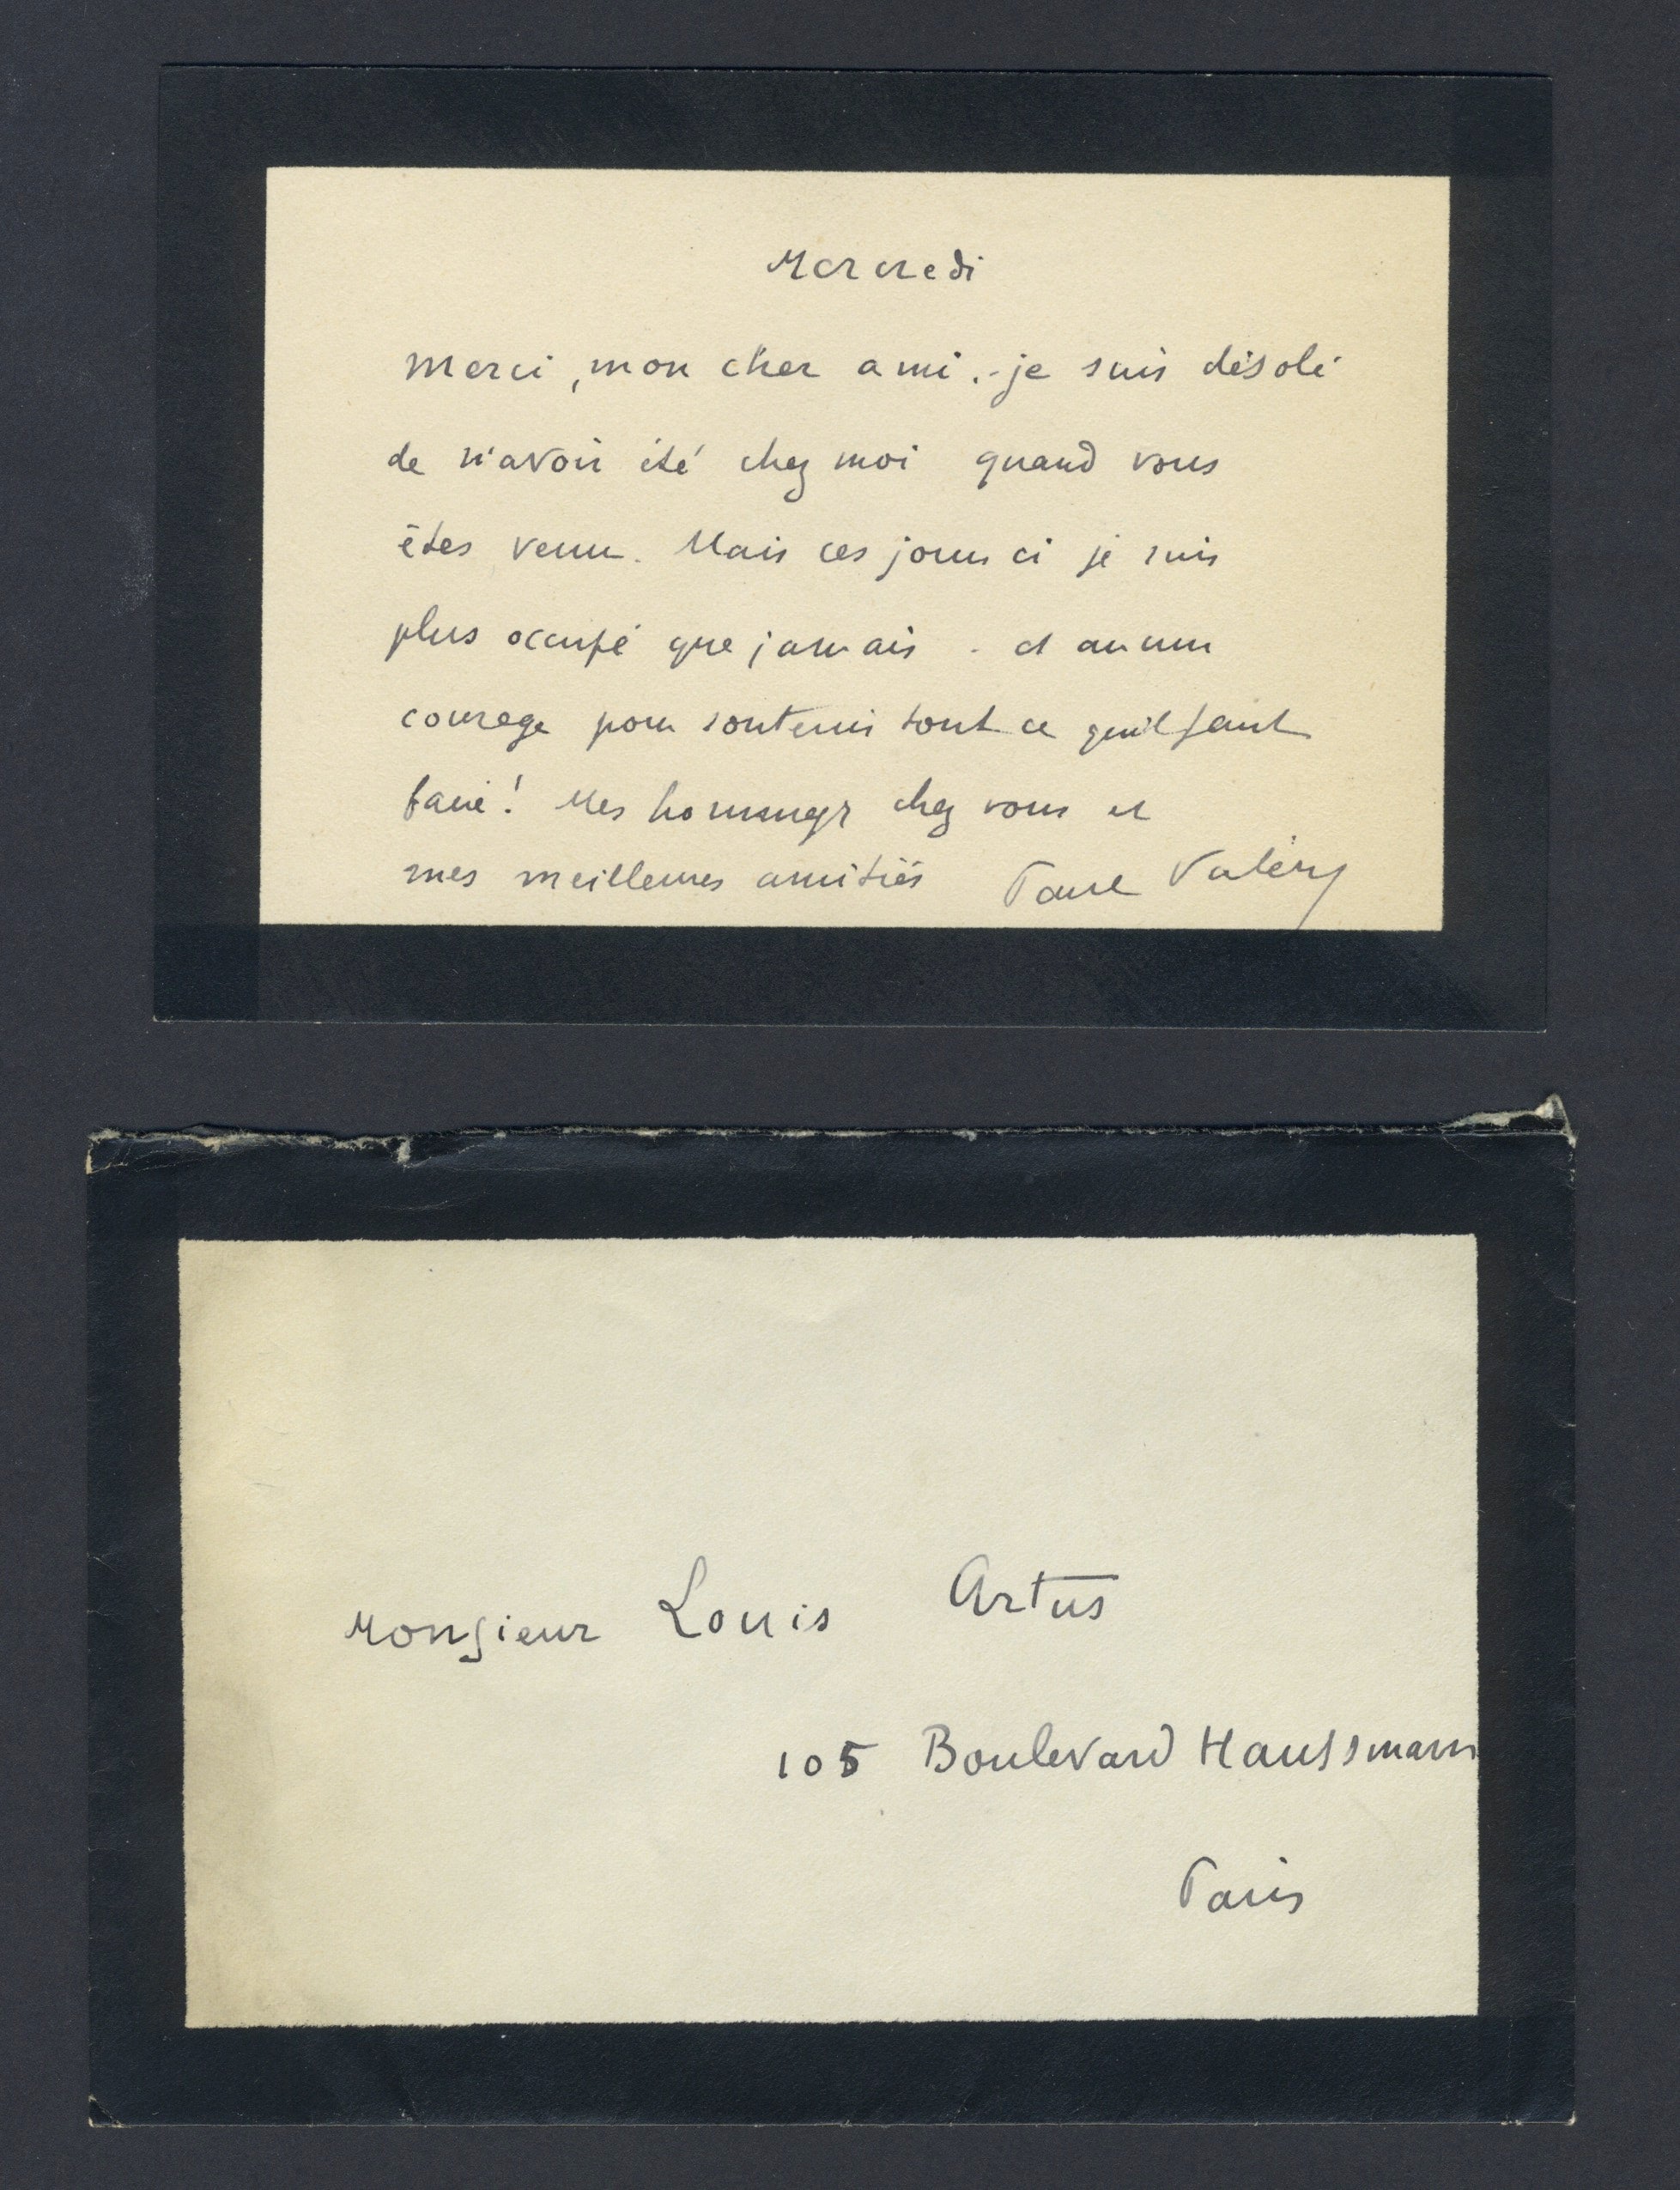 Mercredi
Merci, mon cher ami.- je suis désolé
de n'avoir été chez moi quand vous
êtes venu. Mais ces jours ci je suis
plus occupé que jamais - et aucun
courage pour soutenir tout ce qu'il faut
faire! Mes hommages chez vous et
mes meilleures amitiés Paul Valéry
Monsieur Louis Artus
105 Boulevard Haussmann
Paris